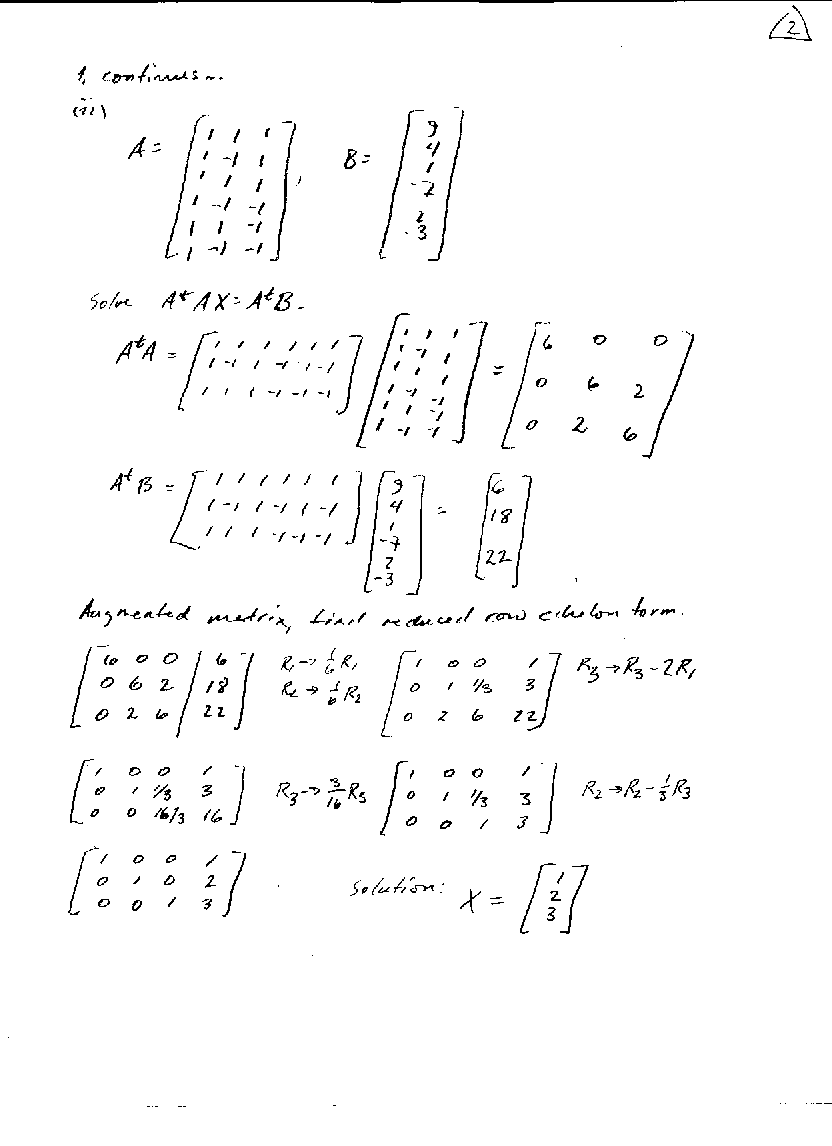 2
1, continues...
(iii)
A = [1 1 1; 1 -1 1; 1 1 1; 1 -1 -1; 1 1 -1; 1 -1 -1], B = [9; 4; 1; -7; 2; -3]
Solve AᵗAX = AᵗB.
AᵗA = [1 1 1 1 1 1; 1 -1 1 -1 1 -1; 1 1 1 -1 -1 -1] [1 1 1; 1 -1 1; 1 1 1; 1 -1 -1; 1 1 -1; 1 -1 -1] = [6 0 0; 0 6 2; 0 2 6]
AᵗB = [1 1 1 1 1 1; 1 -1 1 -1 1 -1; 1 1 1 -1 -1 -1] [9; 4; 1; -7; 2; -3] = [6; 18; 22]
Augmented matrix, find reduced row echelon form.
[6 0 0 | 6; 0 6 2 | 18; 0 2 6 | 22] R₁→1/6 R₁ R₂→1/6 R₂ [1 0 0 1; 0 1 1/3 3; 0 2 6 22] R₃→R₃-2R₁
[1 0 0 1; 0 1 1/3 3; 0 0 16/3 16] R₃→3/16 R₃ [1 0 0 1; 0 1 1/3 3; 0 0 1 3] R₂→R₂-1/3 R₃
[1 0 0 1; 0 1 0 2; 0 0 1 3] Solution: X = [1; 2; 3]